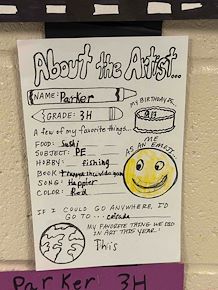 About the Artist...
NAME: Parker
GRADE: 3H
MY BIRTHDAY IS..
A few of my favorite things...
FOOD: Sushi
SUBJECT: PE
HOBBY: fishing
BOOK:
SONG: Happier
COLOR: Red
ME
AS AN EMOJI
IF I COULD GO ANYWHERE, I'D
GO TO...
MY FAVORITE THING WE DID
IN ART THIS YEAR:
This
Parker 3H